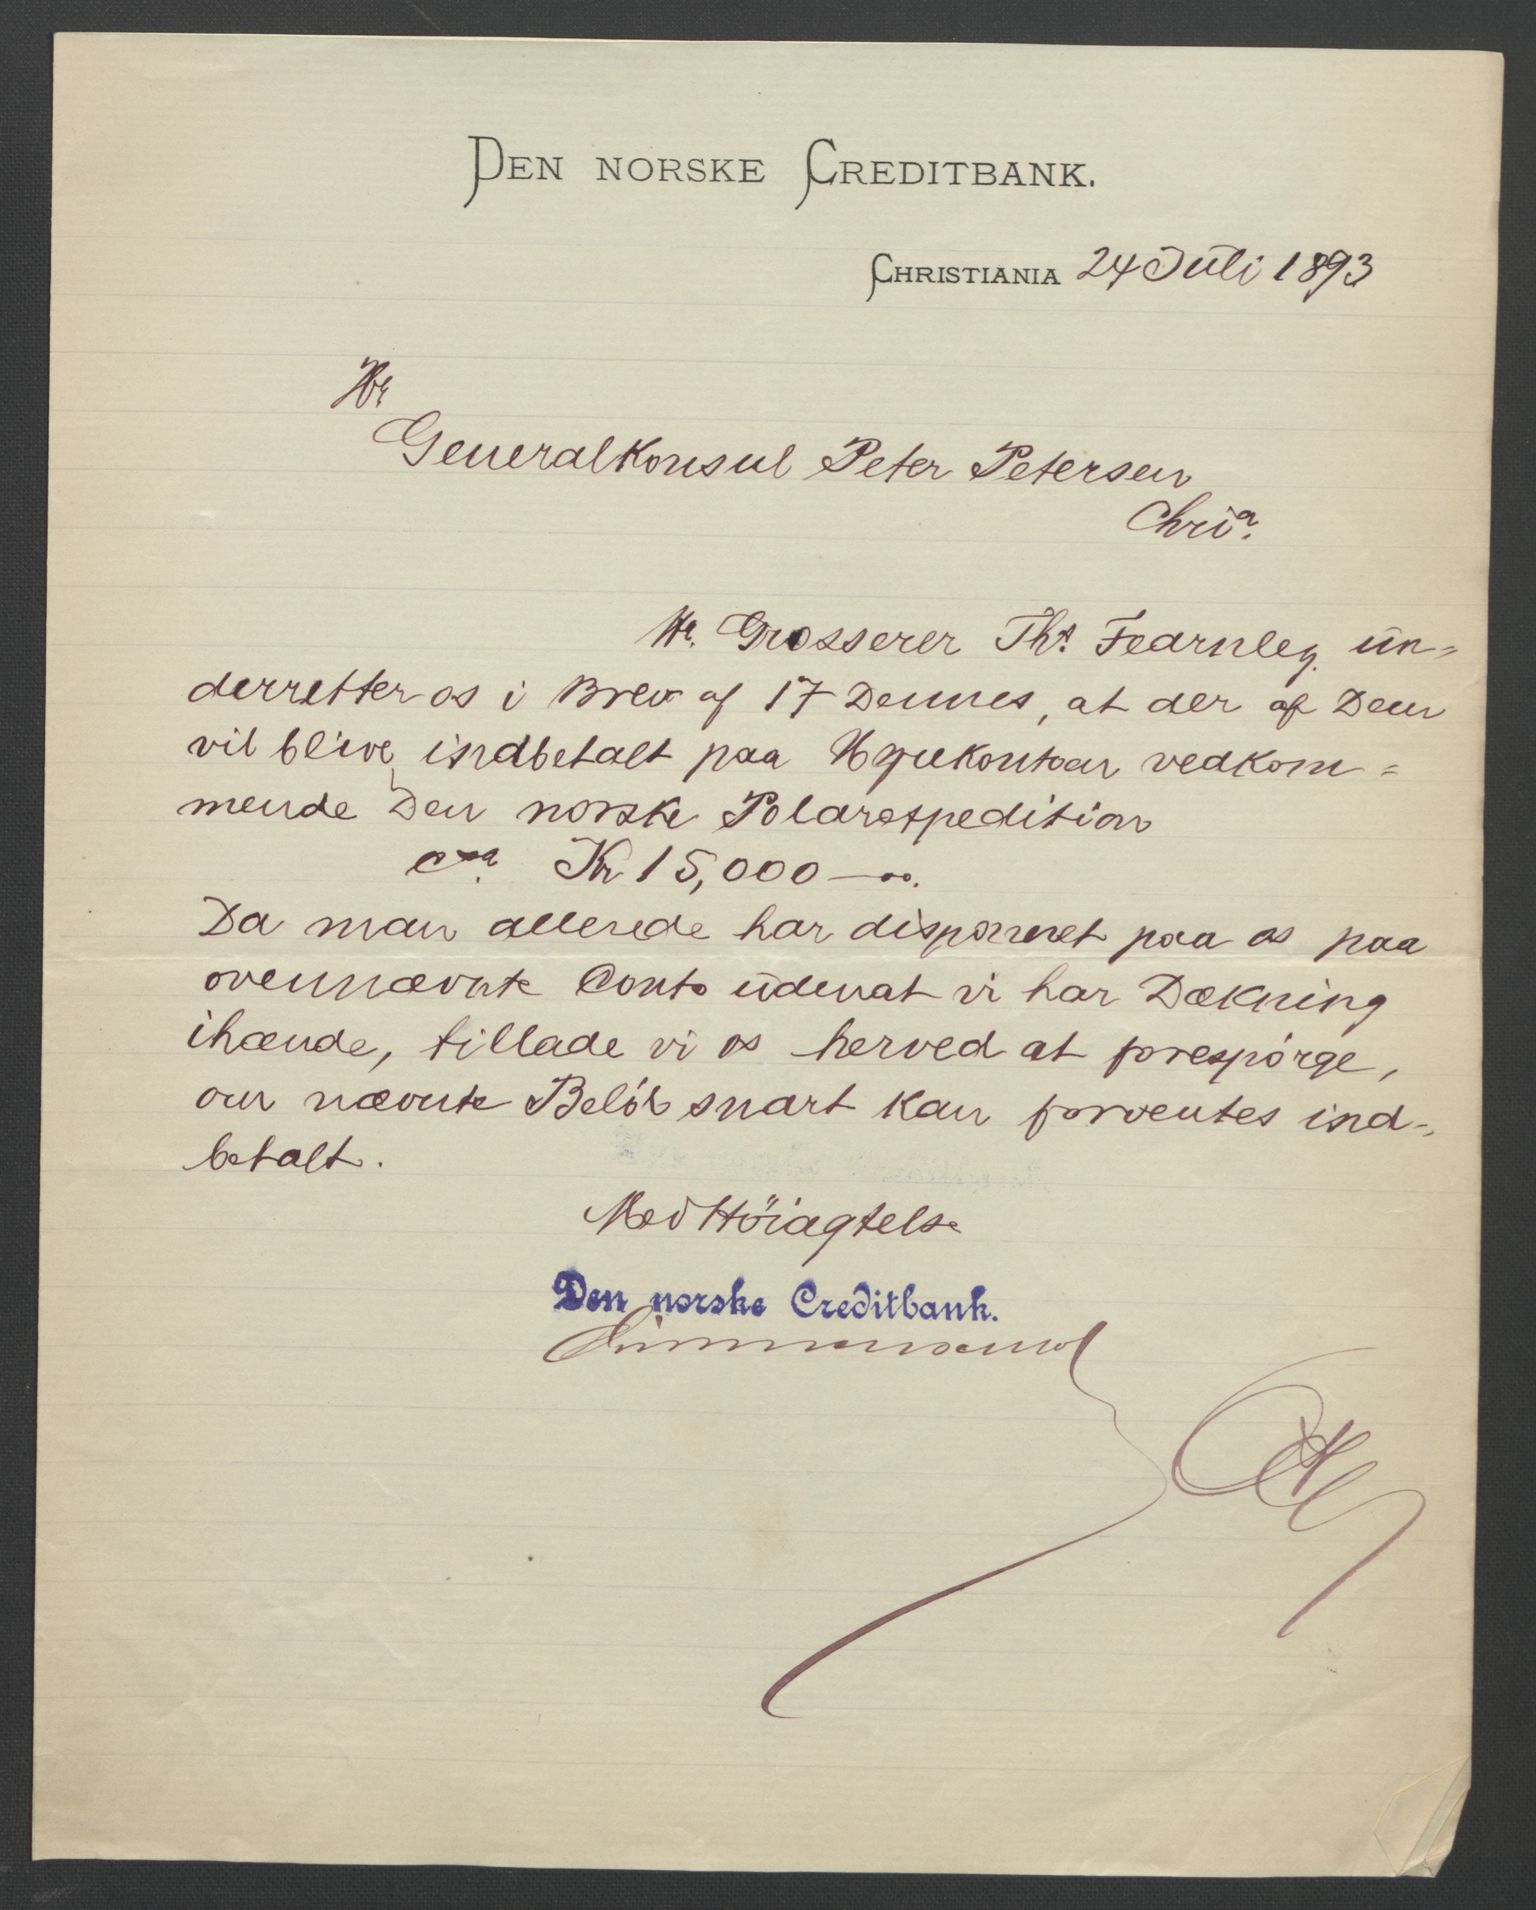 DEN NORSKE CREDITBANK.
CHRISTIANIA 24 Juli 1893
Hr
Generalkonsul Peter Petersen
Chria.
Hr. Grosserer Ths. Fearnley un=
derretter os i Brev af 17 Dennes, at der af Dem
vil blive indbetalt paa vedkom=
mende Den norske Polarexpedition
cxa. Kr 15,000 —
Da man allerede har disponeret paa os paa
ovennævnte Conto udenat vi har Dækning
ihænde, tillade vi os herved at forespørge,
om nævnte Beløb snart kan forventes ind=
betalt.
Med Höiagtelse
Den norske Creditbank.